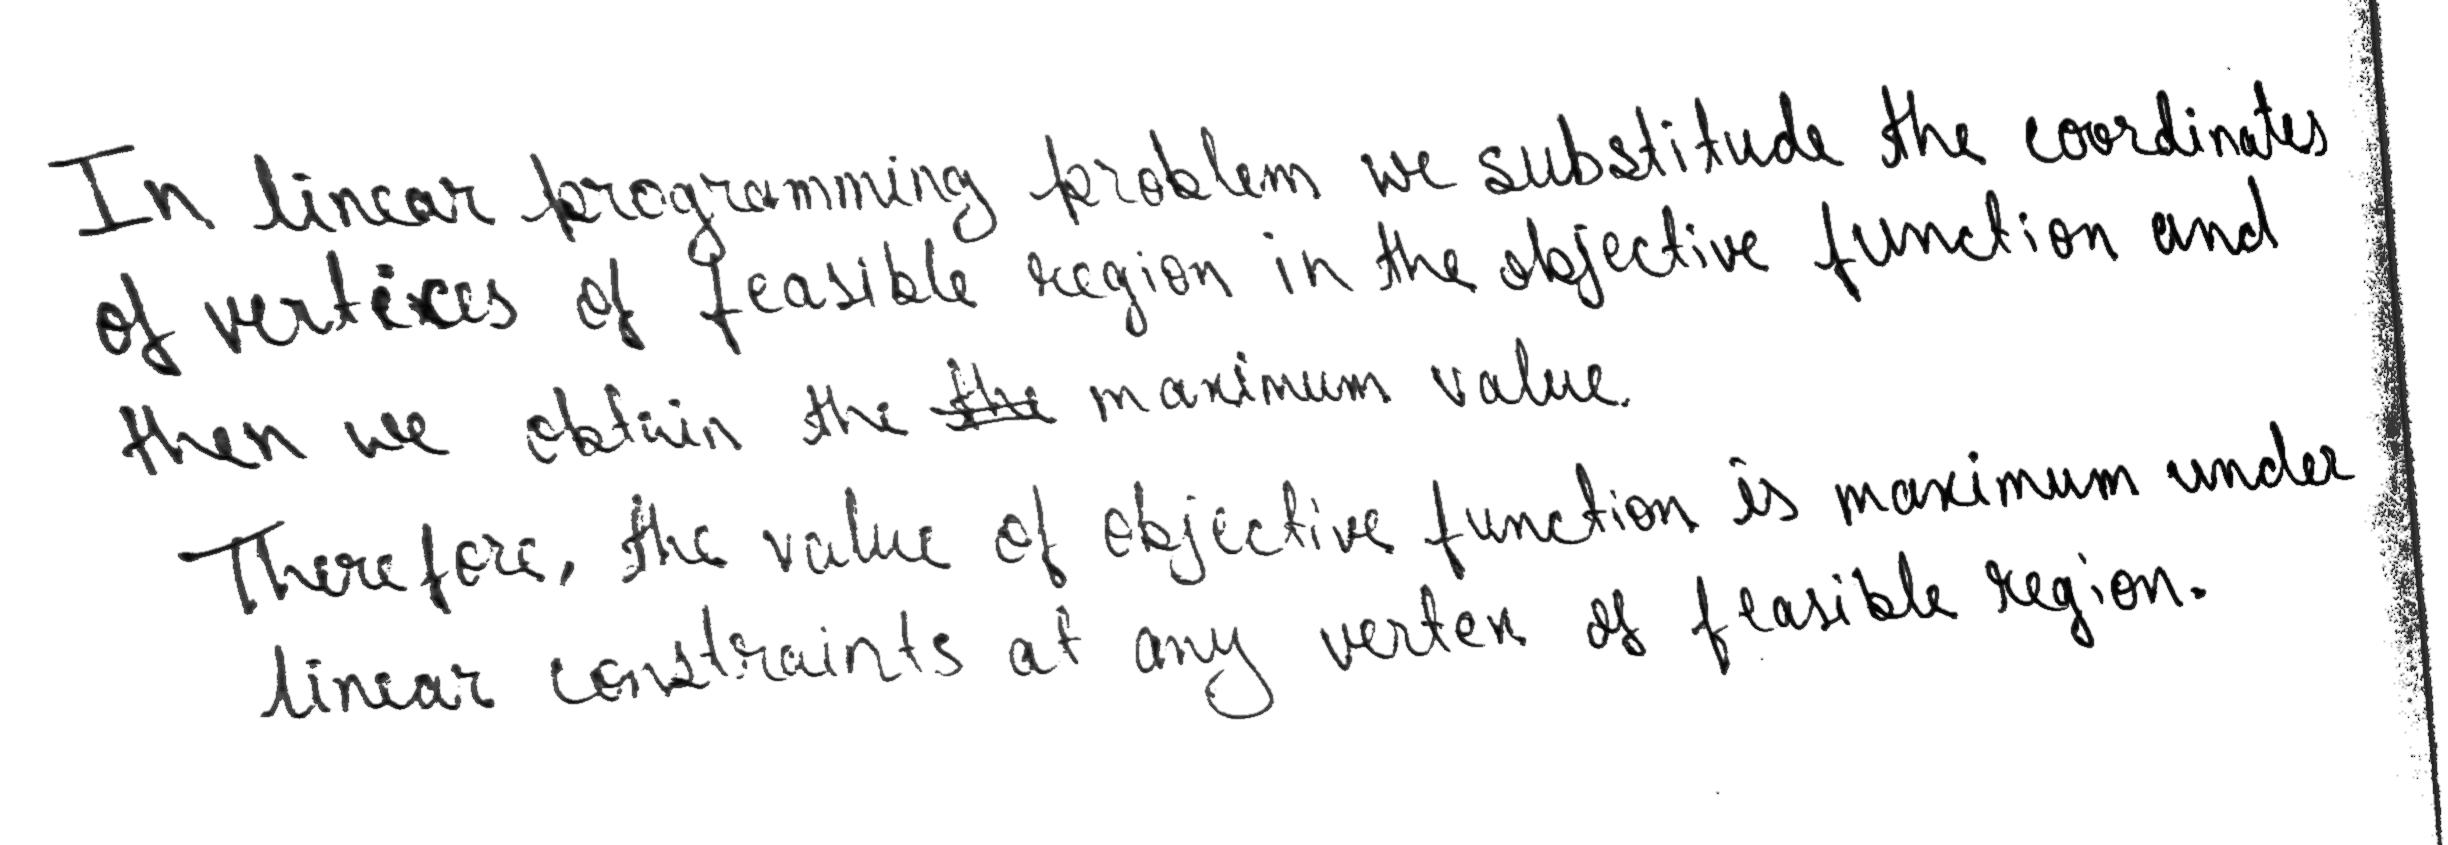 In linear programming problem we substitude the coordinates
of vertices of feasible region in the objective function and
then we obtain the the maximum value.
Therefore, the value of objective function is maximum under
linear constraints at any vertex of feasible region.